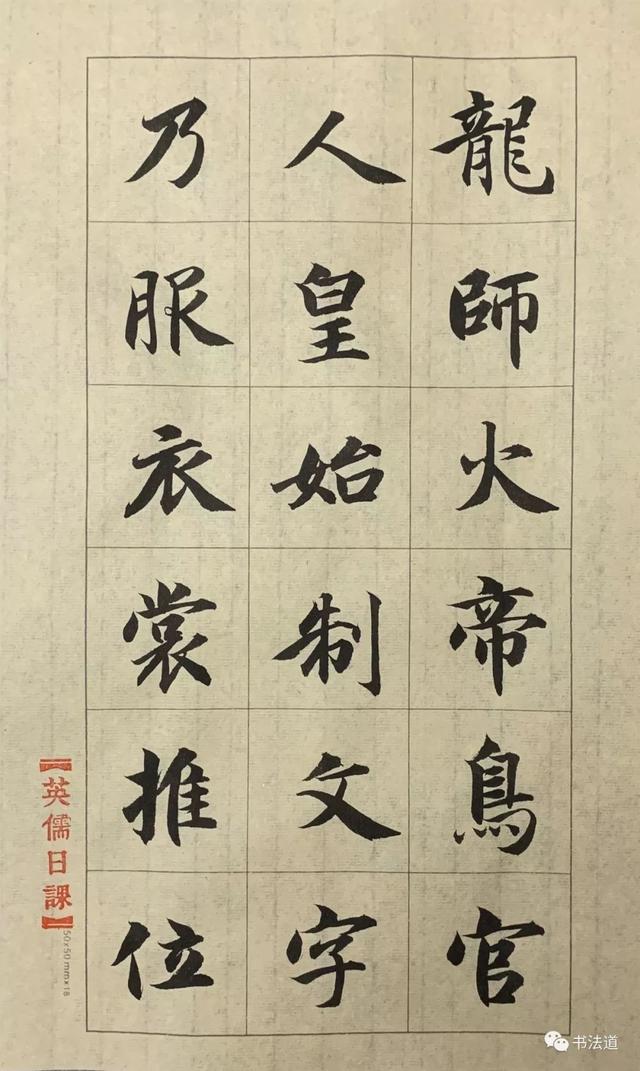 龍師火帝鳥官
人皇始制文字
乃服衣裳推位
【英儒日課】
50x50mmx18
书法道